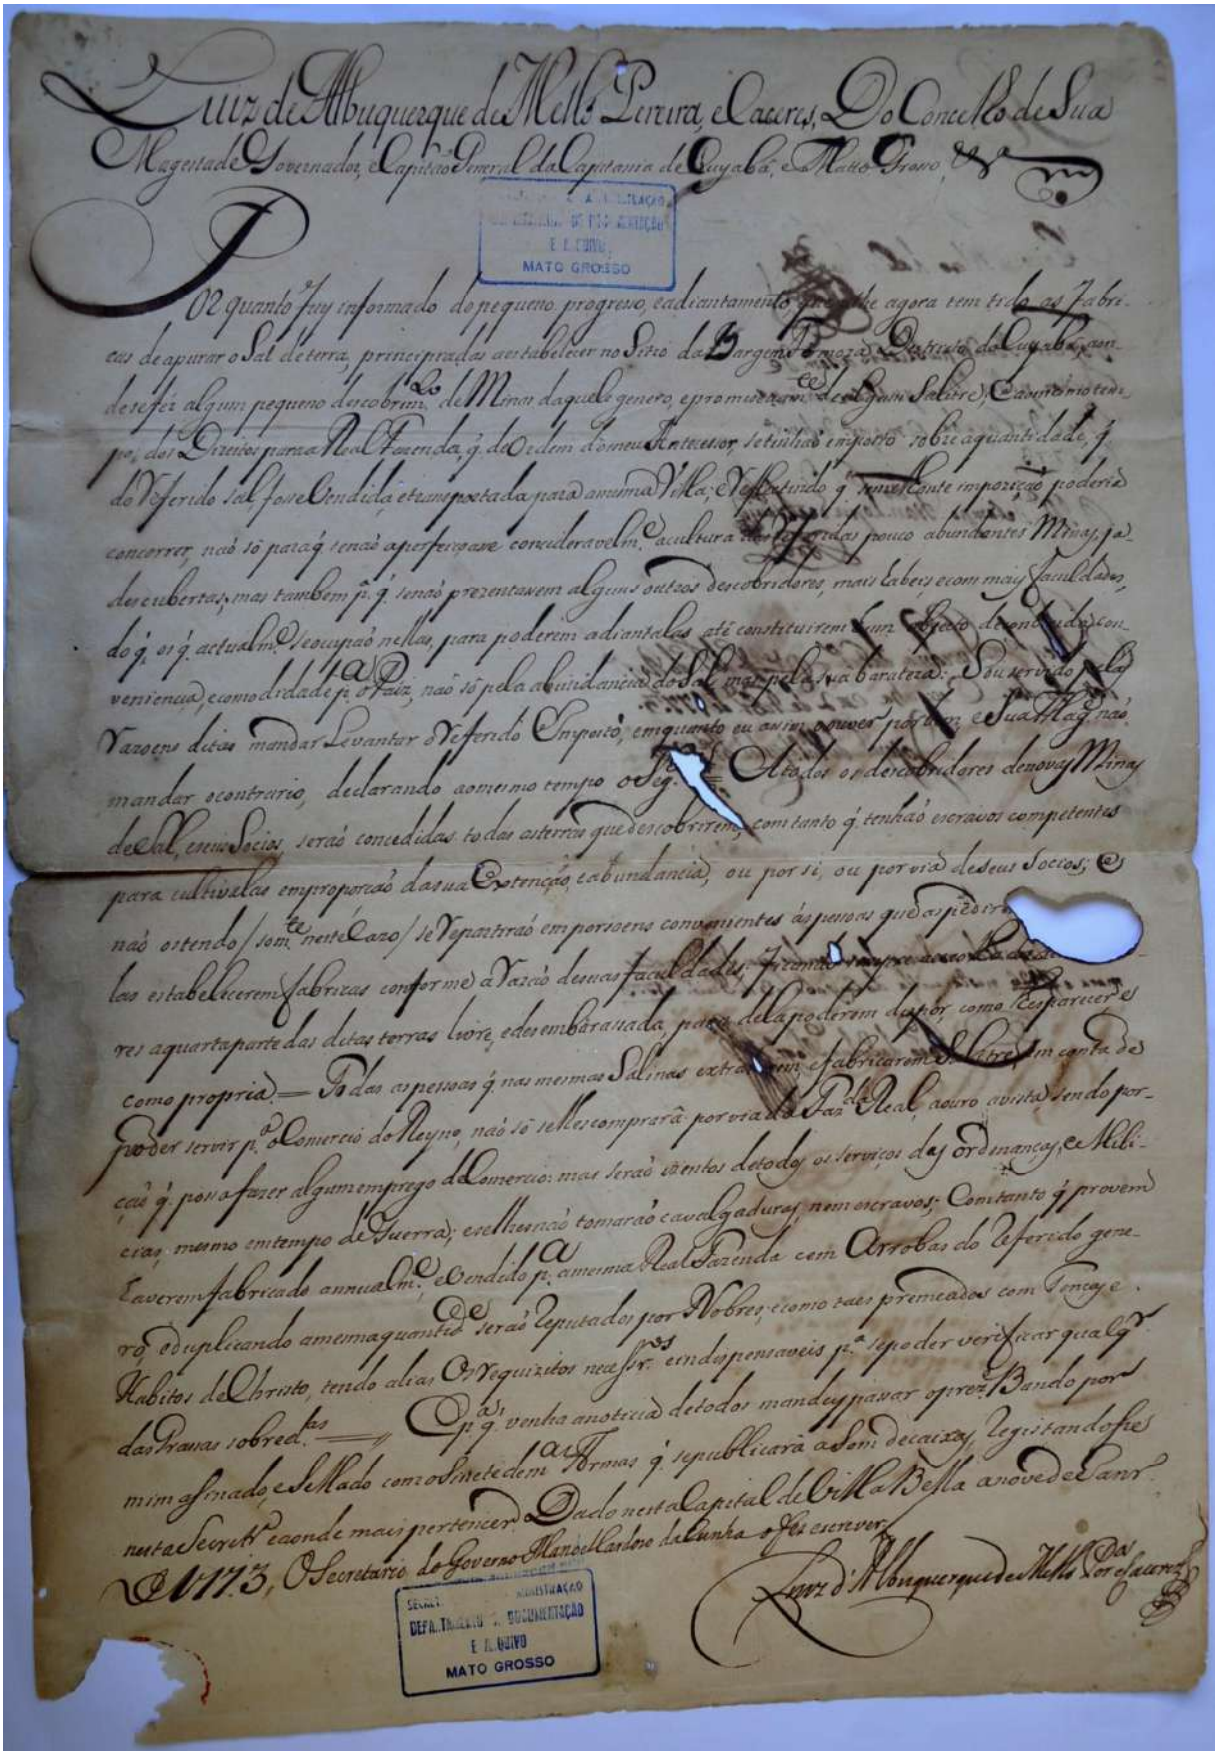 Luiz de Albuquerque de Mello Pereira, e Caceres, Do Concelho de Sua
Magestade Governador, e Capitão General da Capitania de Cuyabá, e Matto Grosso, &ª
ADMINISTRAÇÃO
E ARQUIVO
MATO GROSSO
POr quanto fuy informado do pequeno progreso, e adiantamento, que athe agora tem tido as Fabri-
cas de apurar o Sal de terra, principiadas a estabelecer no Sitio da Bargem Fermoza, Destrito do Cuyabá, aon-
de se fêz algum pequeno descobrim.to de Minas daquele genero, e promiscuam.te de algum Salitre, e ao mesmo tem-
po, dos Direitos para a Real Fazenda, q. de Ordem do meu Antecessor, se tinhaõ emposto sobre a quantidade, q.
do referido sal fosse vendida, e transportada para a mesma Villa; e reflectindo q. semelhante impoziçaõ poderia
concorrer, naõ só para q̃ senaõ aperfeiçoase consideravelm.e a cultura das referidas pouco abundantes Minas, ja
descubertas, mas tambem p.ª q. senaõ prezentasem alguns outros descobridores, mais habeis, e com mais faculdades,
do q. os q. actualm.e se ocupaõ nellas, para poderem adiantalas até constituirem hum objecto de conhecida con-
veniencia, e comodidade p.ª o Paiz, naõ só pela abundancia do Sal, mas pela sua barateza: Sou servido pelas
razoens ditas mandar Levantar o referido Imposto, emquanto eu asim o ouver por bem, e Sua Mag.e naõ
mandar o contrario, declarando ao mesmo tempo o Seg. = A todos os descobridores de novas Minas
de Sal, e seus Socios, seraõ concedidas todas as terras que descobrirem, com tanto q. tenhaõ escravos competentes
para cultivalas em proporçaõ da sua Extençaõ, e abundancia, ou por si, ou por via de seus Socios; e
naõ os tendo / som.te neste Cazo / se repartiraõ em porsoens convenientes ás pesoas que as pedirem
las estabelecerem fabricas conforme a razaõ de suas faculdades; ficando sempre aos
res a quarta parte das ditas terras livre, e desembarasada, para dela poderem dispor, como lhes parecer e
como propria. = Todas as pessoas q. nas mesmas Salinas extrahirem, e fabricarem Salitre, em conta de
poder servir p.ª o Comercio do Reyno, naõ só se lhes comprarâ por via da Faz.da Real, a ouro a vista, sendo por-
çaõ q. posa fazer algum emprego de Comercio: mas seraõ izentos de todos os serviços das ordenanças, e Mili-
cias, mesmo em tempo de Guerra; e se lhes naõ tomaraõ cavalgaduras, nem escravos; Com tanto q. provem
haverem fabricado annualm.e, e vendido p.ª a mesma Real Fazenda cem Arrobas do referido gene-
ro, e duplicando a mesma quantid.e seraõ reputados por Nobres, e como taes premeados com Tenças, e
Habitos de Christo, tendo alias Os requizitos necesr.os e indispensaveis p.ª se poder verificar qualq.r
das Grasas sobred.tas = E p.ª q. venha a noticia de todos mandey pasar o prez.e Bando por
mim asinado, e Sellado com o Sinete de m.as Armas q. se publicarâ a Som de caixas, registandose
nesta Secretr.ª e aonde mais pertencer. Dado nesta Capital de Villa Bella a nove de Janr.º
de 1773, O Secretario do Governo Manoel Cardoso da Cunha o fes escrever
Luiz d'Albuquerque de Mello Per.ª e Caceres
ADMINISTRAÇÃO
DEPARTAMENTO DE DOCUMENTAÇÃO
E ARQUIVO
MATO GROSSO